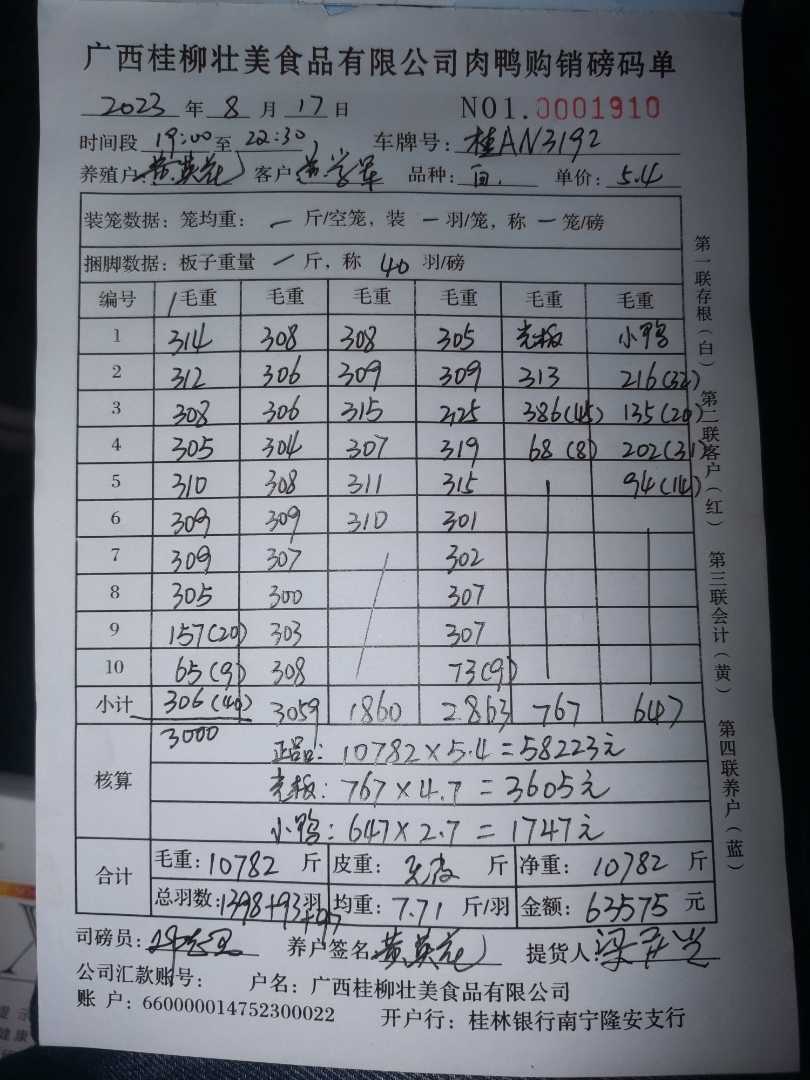 广西桂柳壮美食品有限公司肉鸭购销磅码单
2023 年 8 月 17 日 NO1.0001910
时间段 19:00 至 22:30 车牌号: 桂AN3192
养殖户 黄英花 客户 黄学军 品种: 白. 单价: 5.4
装笼数据: 笼均重: 一 斤/空笼, 装 一 羽/笼, 称 一 笼/磅
捆脚数据: 板子重量 一 斤, 称 40 羽/磅
编号 毛重 毛重 毛重 毛重 毛重 毛重
1 314 308 308 305 壳板 小鸭
2 312 306 309 309 313 216(32)
3 308 306 315 225 386(45) 135(20)
4 305 304 307 319 68(8) 202(31)
5 310 308 311 315 94(14)
6 309 309 310 301
7 309 307 302
8 305 300 307
9 157(20) 303 307
10 65(9) 308 73(9)
小计 306(40) 3059 1860 2863 767 647
3000
核算 正品: 10782×5.4=58223元
壳板: 767×4.7=3605元
小鸭: 647×2.7=1747元
合计 毛重: 10782 斤 皮重: 斤 净重: 10782 斤
总羽数: 1398+93羽 均重: 7.71 斤/羽 金额: 63575 元
+97
司磅员: 养户签名 黄英花 提货人:
公司汇款账号: 户名: 广西桂柳壮美食品有限公司
账 户: 660000014752300022 开户行: 桂林银行南宁隆安支行
第一联存根(白) 第二联客户(红) 第三联会计(黄) 第四联养户(蓝)